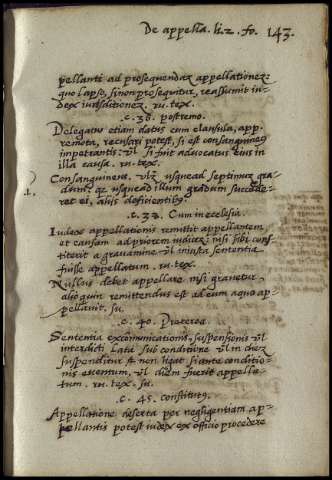 De appella. li. 2. fo. 143.
pellanti ad prosequendaz appellationez:
quo lapso, si non prosequitur, reassumit in-
dex iurisditionez. ru. tex.
c. 36. postremo.
Delegatus etiam datus cum clausula, app.
remota, recusari potest, si est consanguineus
impetrantis: vl si fuit advocatus eius in
illa causa. ru. tex.
Consanguineus, vlz usquead septimum gra-
dum: qz usquead illum gradum succede-
ret ei, aliis deficientibus.
1.
c. 38. Cum in ecclesia.
Iudex appellationis remittit appellantem
et causam ad priorem iudicez: nisi sibi cons-
titerit a gravamine vl iniusta sententia
fuisse appellatum. ru. tex.
Nullus debet appellare nisi gravetur
alioquin remittendus est ad eum a quo ap-
pellavit. su.
c. 40. Preterea.
Sententia excommunicationis, suspensionis vl
interdicti lata sub conditione vl in diez
suspenditur et non ligat si ante conditio-
nis eventum, vl diem fuerit appella-
tum. ru. tex. su.
c. 45. constitutus.
Appellatione deserta per negligentiam ap-
pellantis potest iudex ex officio procedere